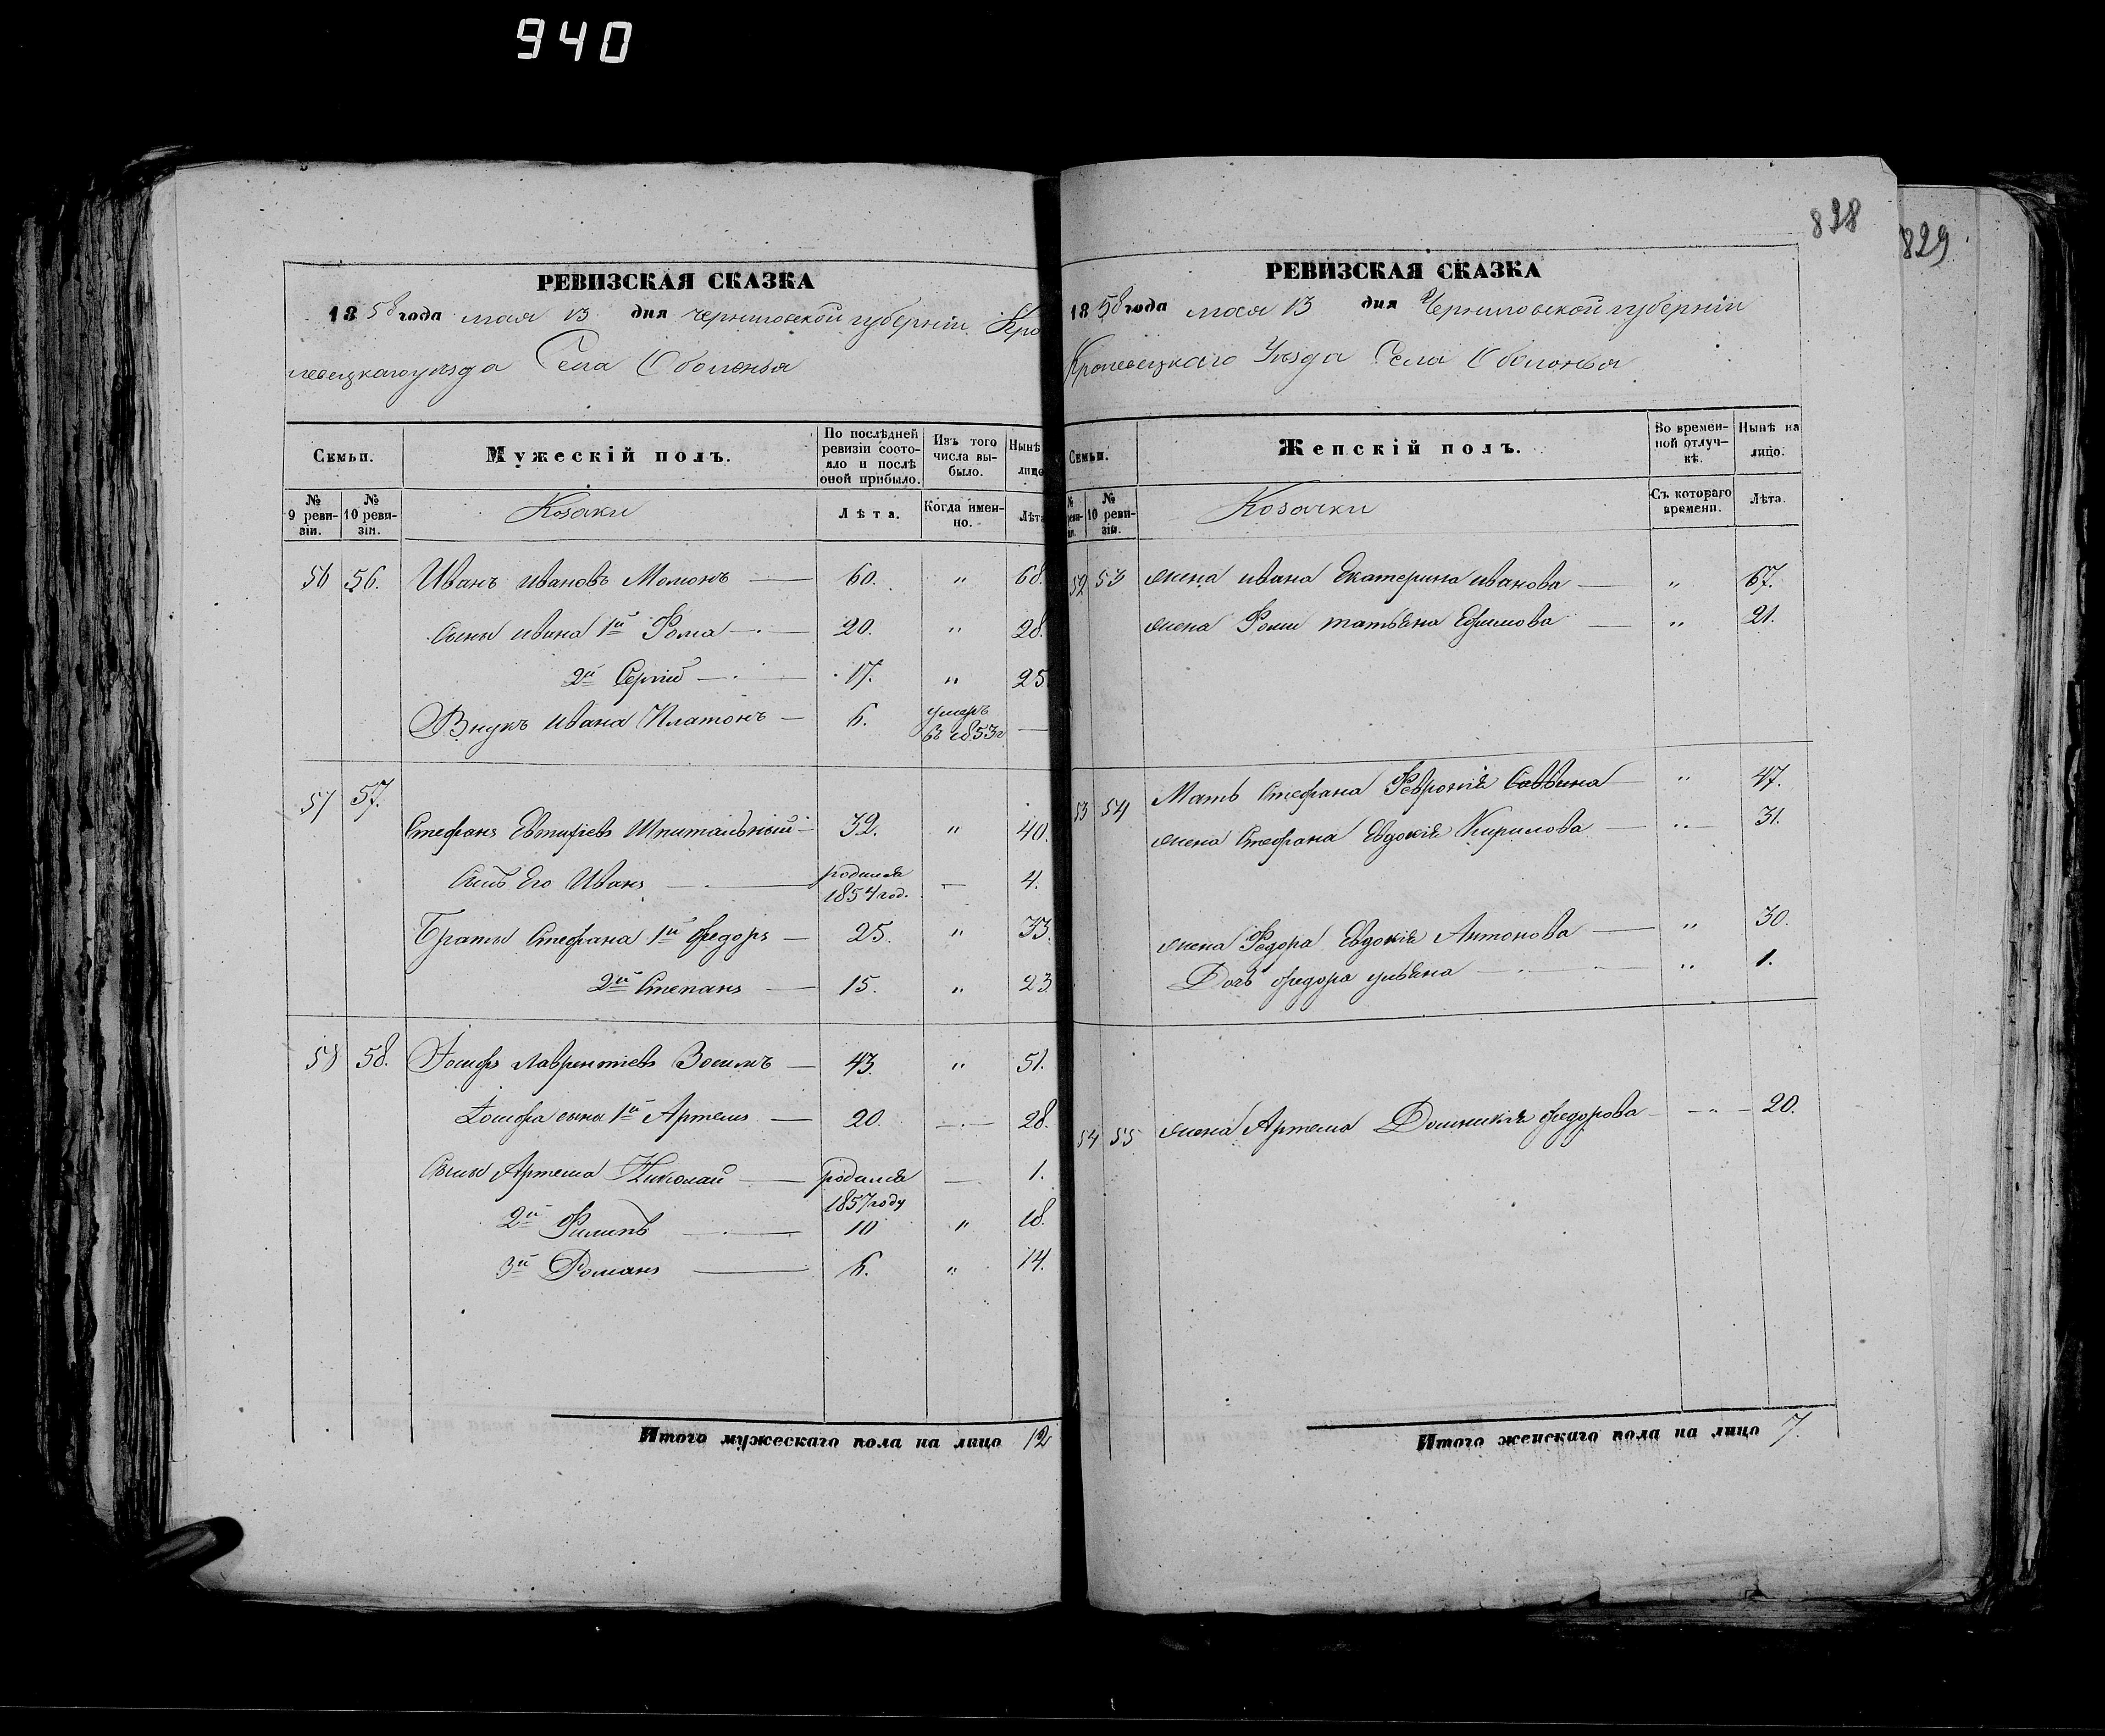 940
РЕВИЗСКАЯ СКАЗКА
1858 года мая 13 дня Черниговской губерніи Кро
левецкаго уезда Села Оболонья
Семьи.
Мужескій полъ.
По послѣдней ревизіи состояло и послѣ оной прибыло.
Изъ того числа выбыло.
Нынѣ лицо
№ 9 ревизіи.
№ 10 ревизіи.
Козаки
Лѣта.
Когда именно.
Лѣта
56 56. Иванъ Ивановъ Момонъ — 60. „ 68.
Сыны Ивана 1й Фома — 20. „ 28.
2й Сергій — 17. „ 25
Внукъ Ивана Платонъ — 6. умеръ въ 1853г —
57 57.
Стефанъ Евтифіевъ Шпитальный — 32. „ 40.
Сынъ Его Иванъ — родился 1854 год. — 4.
Браты Стефана 1й Федоръ — 25. „ 33.
2й Степанъ — 15. „ 23
58 58. Іосифъ Лаврентіевъ Зосимъ — 43. „ 51.
Іосифа сыны 1й Артемъ — 20. — 28.
Сынъ Артема Николай — родился 1857 году — 1.
2й Филипъ — 10 „ 18.
3й Романъ — 6. „ 14.
Итого мужескаго пола на лицо 12
828
829
РЕВИЗСКАЯ СКАЗКА
1858 года мая 13 дня Черниговской губерніи
Кролевецкаго Уезда Села Оболонья
Семьи.
Женскій полъ.
Во временной отлучкѣ.
Нынѣ на лицо.
№ 10 ревизіи.
Козачки
Съ котораго времени.
Лѣта.
52 53 жена Ивана Екатерина Иванова — „ 67.
жена Фомы Татьяна Ефимова — „ 21.
53 54 Мать Стефана Февронія Саввина „ 47.
жена Стефана Евдокія Кирилова — „ 31.
жена Федора Евдокія Антонова — „ 30.
Дочь Федора Ульяна — „ 1.
54 55 жена Артема Домникія Федорова — „ — 20.
Итого женскаго пола на лицо 7.